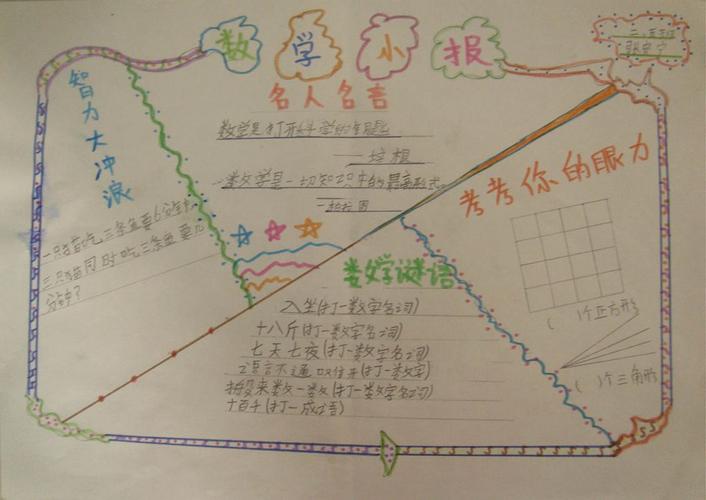 数学小报
智力大冲浪
一只猫吃三条鱼要6分钟,
三只猫同时吃三条鱼要几
分钟?
名人名言
数学是打开科学的钥匙
——培根
数学是一切知识中的最高形式。
——柏拉图
考考你的眼力
( )个正方形
( )个三角形
数学谜语
入坐(打一数学名词)
十八斤(打一数学名词)
七天七夜(打一数学名词)
语言不通
来数一数(打一数学名词)
十百千(打一成语)